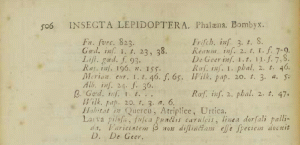 506 INSECTA LEPIDOPTERA. Phalæna. Bombyx.
Fn. svec. 823. Frisch. inf. 3. t. 8.
Gœd. inf. 1. t. 23, 38. Reaum. inf. 2. t. f. 7-9.
List. gœd. f. 93. De Geer inf. 1. t. 11. f. 7, 8.
Raj. inf. 196. n. 155. Rœf. inf. 1. phal. 2. t. 46.
Merian. eur. 1. t. 46. f. 65. Wilk. pap. 20. t. 3. a.
Alb. inf. 25. f. 36.
β. Gœd. inf. 1. t. Rœf. inf. 2. phal. 2. t. 47.
Wilk. pap. 20. t. 3. a. 6.
Habitat in Quercu, Atriplice, Urtica.
Larva pilosa, fusca punctis cæruleis, linea dorsali palli-
da. Varietatem β non distinctam esse speciem docuit
D. De Geer.